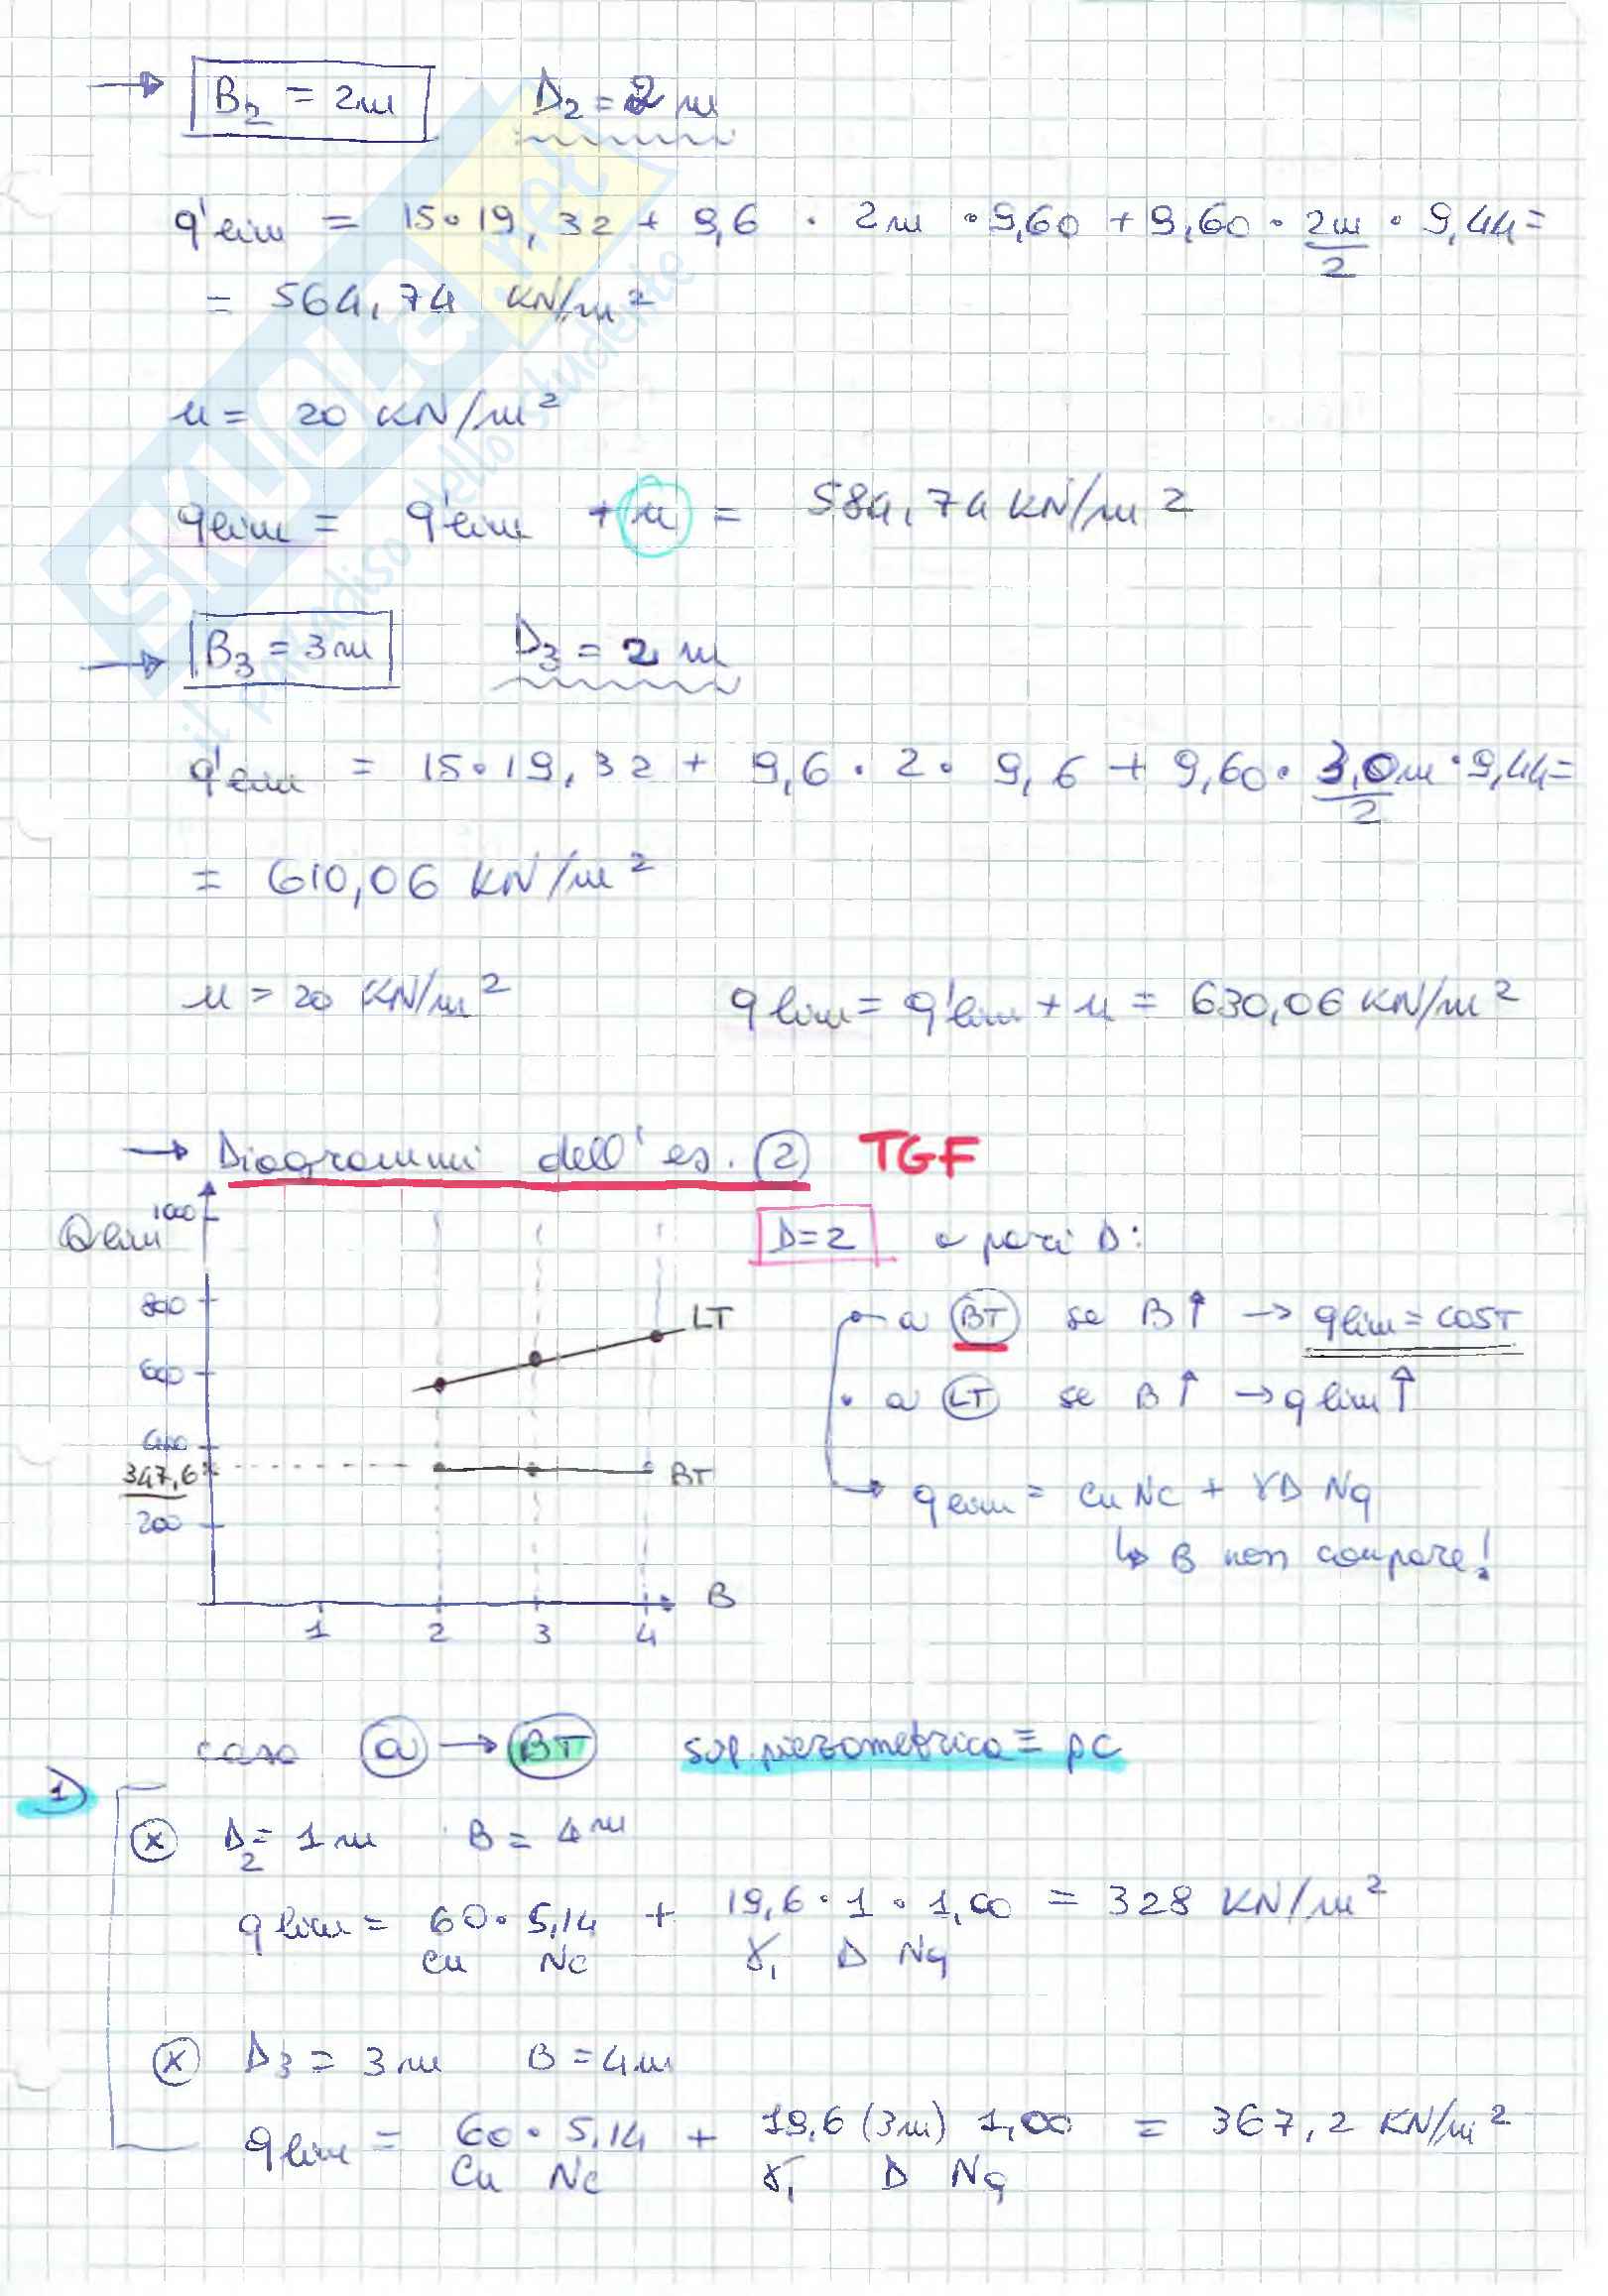 → B₂ = 2m D₂ = 2 m
q'lim = 15•19,32 + 9,6 • 2m • 9,60 + 9,60 • 2m/2 • 9,44 =
= 564,74 KN/m²
u = 20 KN/m²
qlim = q'lim + u = 584,74 KN/m²
→ B₃ = 3m D₃ = 2 m
q'lim = 15•19,32 + 9,6 • 2 • 9,6 + 9,60 • 3,0m/2 • 9,44 =
= 610,06 KN/m²
u = 20 KN/m² qlim = q'lim + u = 630,06 KN/m²
→ Diagrammi dell'es. 2 TGF
Qlim
1000
800
600
400
347,6
200
1 2 3 4
B
LT
BT
D=2 a pari D:
• a BT se B↑ → qlim = COST
• a LT se B↑ → qlim↑
→ qlim = cu Nc + γD Nq
↳ B non compare!
caso a → BT sup. piezometrica ≡ pc
1)
x D₂ = 1 m B = 4 m
qlim = 60 • 5,14 + 19,6 • 1 • 1,00 = 328 KN/m²
cu Nc γ₁ D Nq
x D₃ = 3 m B = 4 m
qlim = 60 • 5,14 + 19,6 (3m) 1,00 = 367,2 KN/m²
Cu Nc γ₁ D Nq
SKUOLA.net
il paradiso dello studente